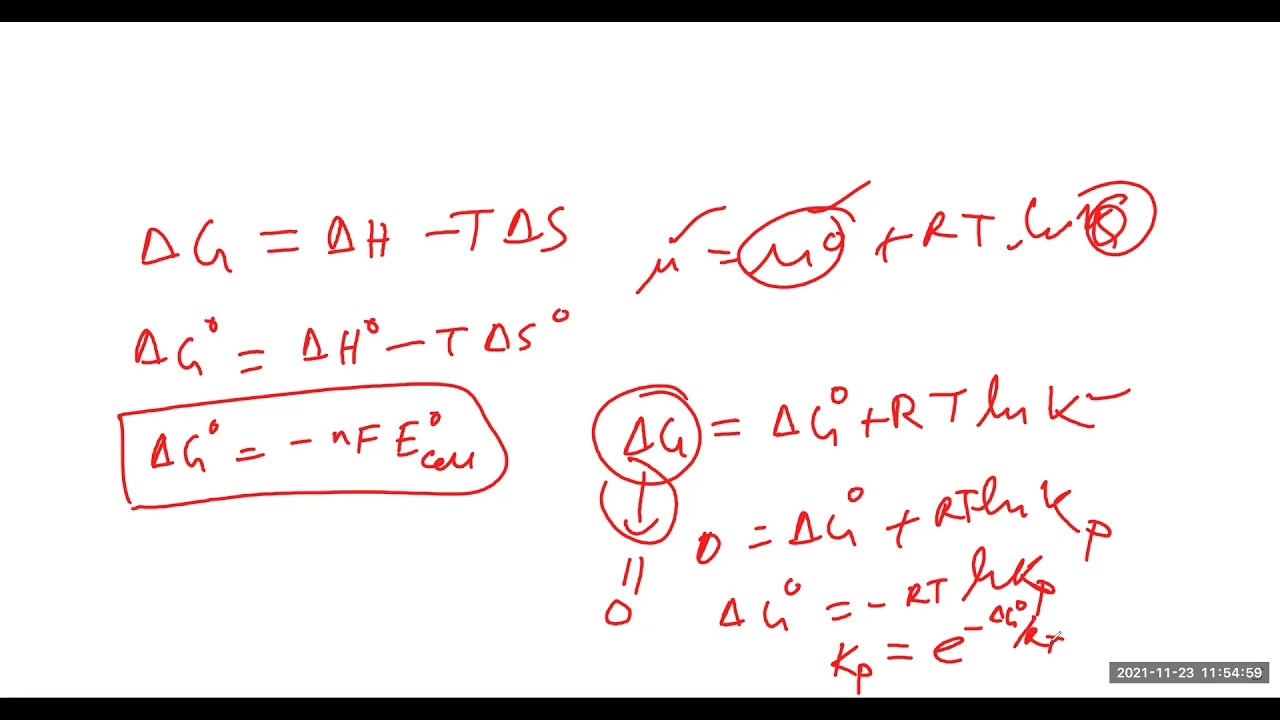 ΔG = ΔH - TΔS
ΔG° = ΔH° - TΔS°
ΔG° = -nFE°cell
μ = μ° + RT ln
ΔG = ΔG° + RT ln K
0
0 = ΔG° + RT ln Kp
ΔG° = -RT ln Kp
Kp = e^-ΔG°/RT
2021-11-23 11:54:59